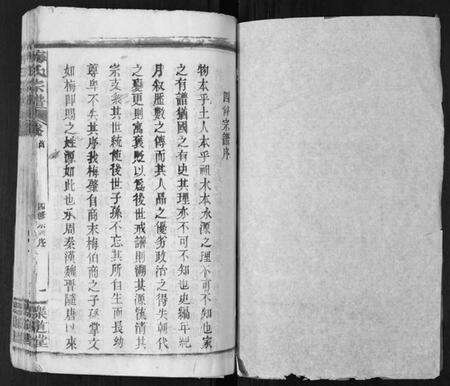 四修宗譜序
物本乎土人本乎祖木本水源之理不可不知也家
之有譜猶國之有史其理亦不可不知也史編年紀
月叙歷數之傳而其人品之優劣政治之得失朝代
之變更則寓褒貶以爲後世戒譜則溯其源流清其
宗支叙其世統使後世子孫不忘其所自生而長幼
尊卑不失其序我梅肇自商末梅伯商之子孫掌文
如梅卽賜之姓源如此也承周秦漢魏晉隨唐以來
梅氏宗譜
四修宗序
一
樂道堂